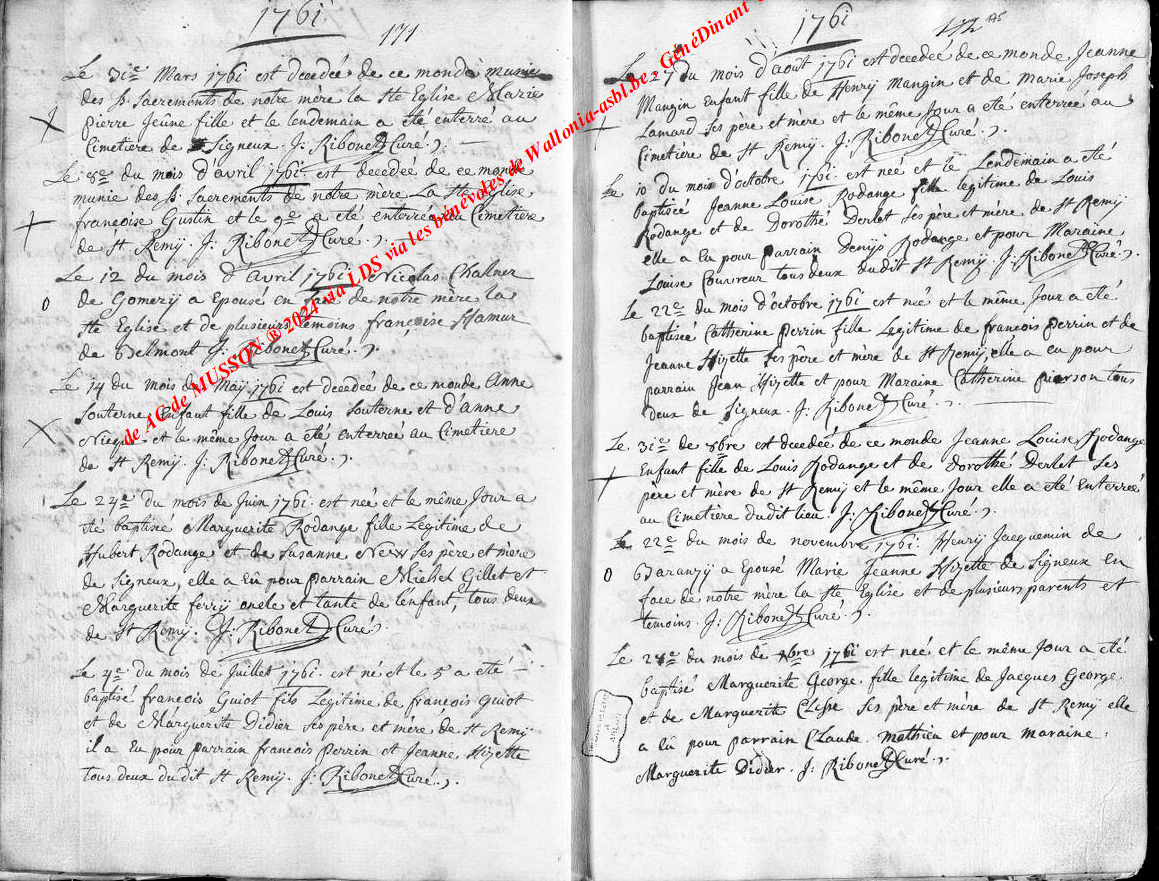 1761
171
Le 31e Mars 1761 est decedée de ce monde munie
des S. Sacrements de notre mère la Ste Eglise Marie
pierre Jeûne fille et le lendemain a été enterré au
Cimetière de Signeux. J: Ribonet Curé.
Le 8e du mois d'avril 1761 est decedée de ce monde
munie des S. Sacrements de notre mère La Ste Eglise
francoise Gustin et le 9e a été enterrée au Cimetière
de St Remij. J: Ribonet Curé.
Le 12 du mois d'avril 1761 Nicolas
de Gomerij a Epousé en face de notre mère la
Ste Eglise et de plusieurs temoins francoise Hamur
de Belmont J: Ribonet Curé.
Le 14 du mois de Maij 1761 est decedée de ce monde Anne
Souterne Enfant fille de Louis Souterne et d'anne
et le même Jour a été enterreé au Cimetiere
de St Remij. J: Ribonet Curé.
Le 24e du mois de Juin 1761. est neé et le même Jour a
été baptisée Marguerite Rodange fille Legitime de
Hubert Rodange et de Susanne New ses père et mère
de Signeux, elle a eû pour parrain Michel Gillet et
Marguerite ferrij oncle et tante de l'enfant, tous deux
de St Remij. J: Ribonet Curé.
Le 4e du mois de Juillet 1761. est né et le 5 a été
baptisé francois Guiot fils Legitime de francois Guiot
et de Marguerite Didier ses père et mére de St Remij.
il a eu pour parrain francois Perrin et Jeanne Hizette
tous deux dudit St Remij. J: Ribonet Curé.
1761
172
175
Le 27 du mois d'aout 1761 est decedeé de ce monde Jeanne
Mangin Enfant fille de Henry Mangin et de Marie Joseph
Lamard ses père et mere et le même Jour a eté enterreé au
Cimetière de St Remij. J: Ribonet Curé.
Le 10 du mois d'octobre 1761. est neé et le Lendemain a eté
baptiseé Jeanne Louise Rodange fille legitime de Louis
Rodange et de Dorothé Derlet ses père et mère de St Remij
elle a eu pour parrain Denijs Rodange et pour Maraine
Louise Couvreur tous deux dudit St Remij. J: Ribonet Curé.
Le 22e du mois d'octobre 1761 est neé et le même Jour a eté
baptiseé Catherine Perrin fille Legitime de francois perrin et de
Jeanne Hizette ses père et mère de St Remij, elle a eu pour
parrain Jean Hizette et pour Maraine Catherine pierson tous
deux de Signeux. J: Ribonet Curé.
Le 31e de 8bre est decedeé de ce monde Jeanne Louise Rodange
Enfant fille de Louis Rodange et de Dorothé Derlet ses
père et mère de St Remij et le même Jour elle a eté Enterreé
au Cimetière dudit lieu. J: Ribonet Curé.
Le 22e du mois de novembre 1761. Henrij Jacquemin de
Baranzij a Epousé Marie Jeanne Hizette de Signeux en
face de notre mère la Ste Eglise et de plusieurs parents et
temoins. J: Ribonet Curé.
Le 28e du mois de 1761 est neé et le même Jour a eté
baptisé Marguerite George fille legitime de Jacques George
et de Marguerite Clesse ses père et mère de St Remij elle
a eû pour parrain Claude Mathieu et pour maraine
Marguerite Didier. J: Ribonet Curé.
de AG de MUSSON ® 2024 via LDS via les bénévoles de Wallonia-asbl.be - GénéDinant